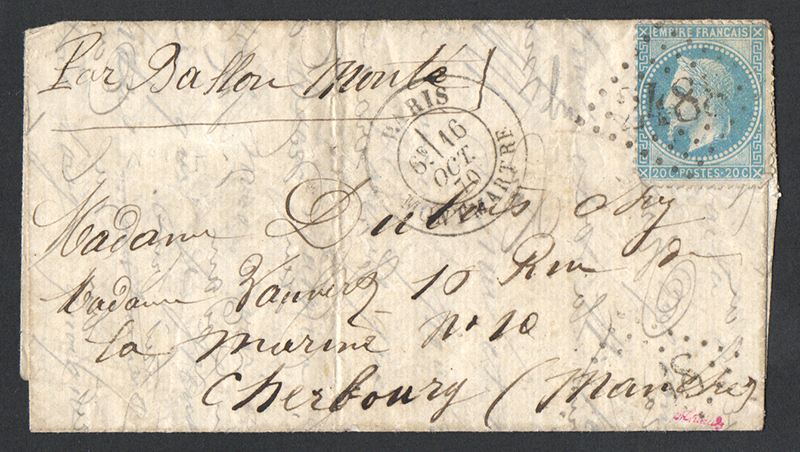 Par Ballon Monté
EMPIRE FRANÇAIS
20 C POSTES 20 C
PARIS
6E 16
OCT.
70
MONTMARTRE
Madame Dubois chez
Madame 10 Rue de
la Marine No 10
Cherbourg (Manche)